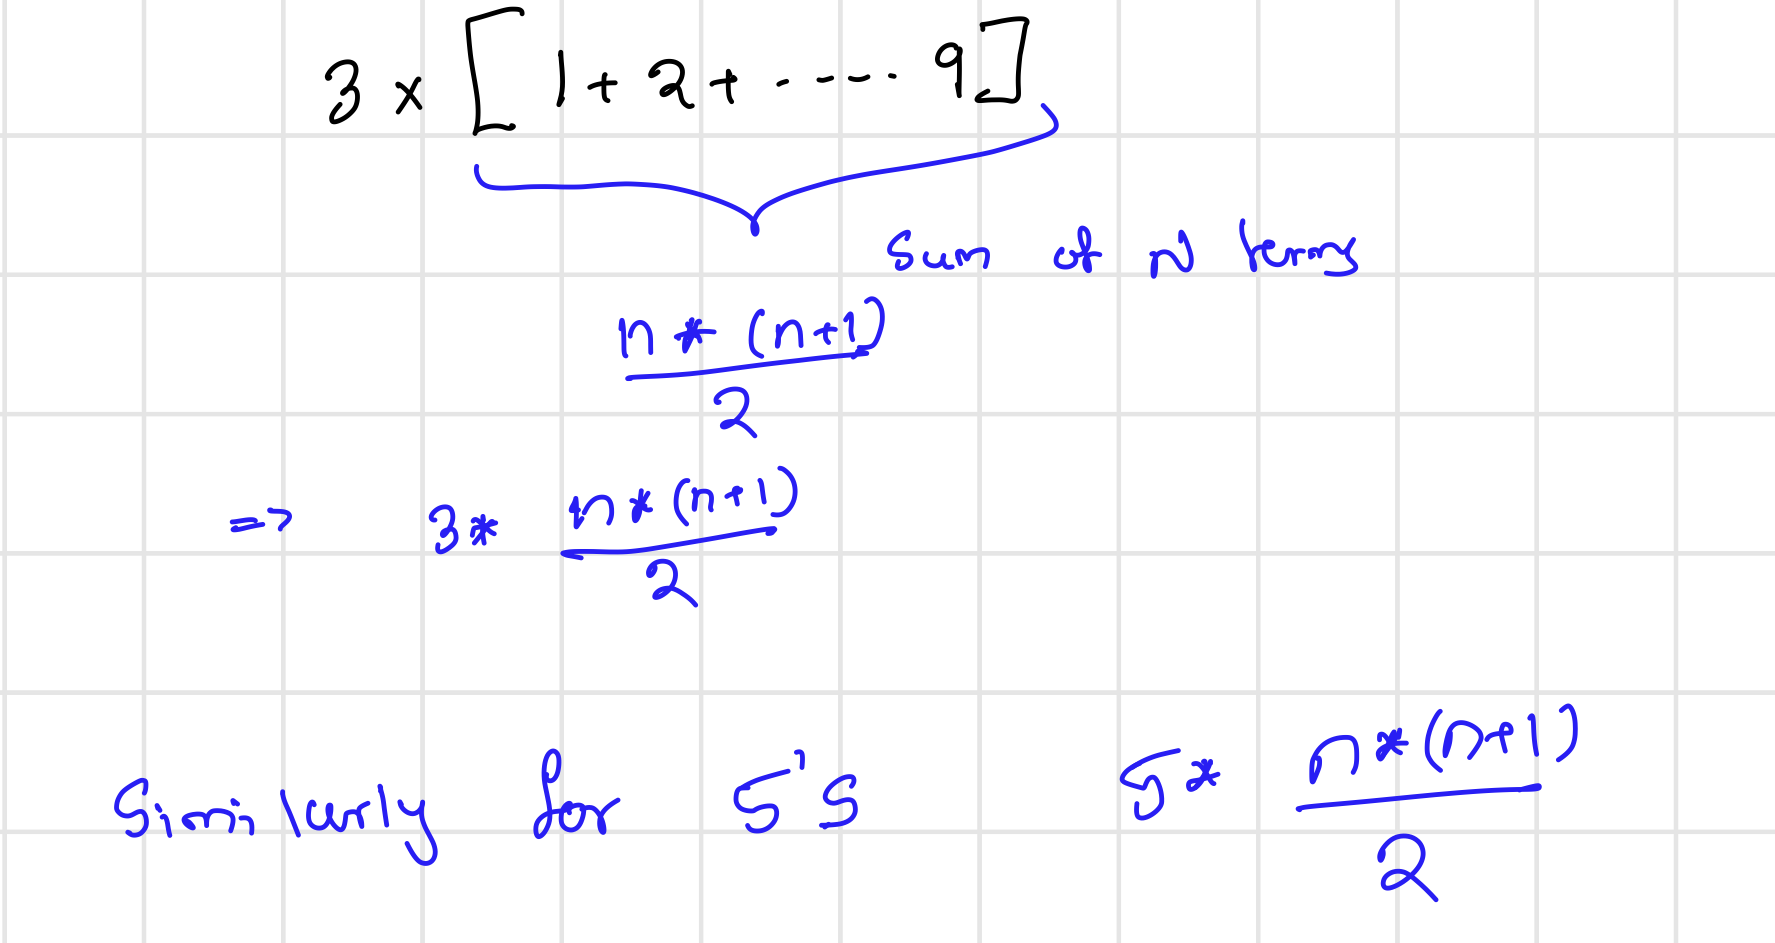 3 x [ 1 + 2 + ..... 9 ]
Sum of N terms
n * (n+1)
2
=> 3 * n * (n+1)
2
Similarly for 5's 5 * n * (n+1)
2